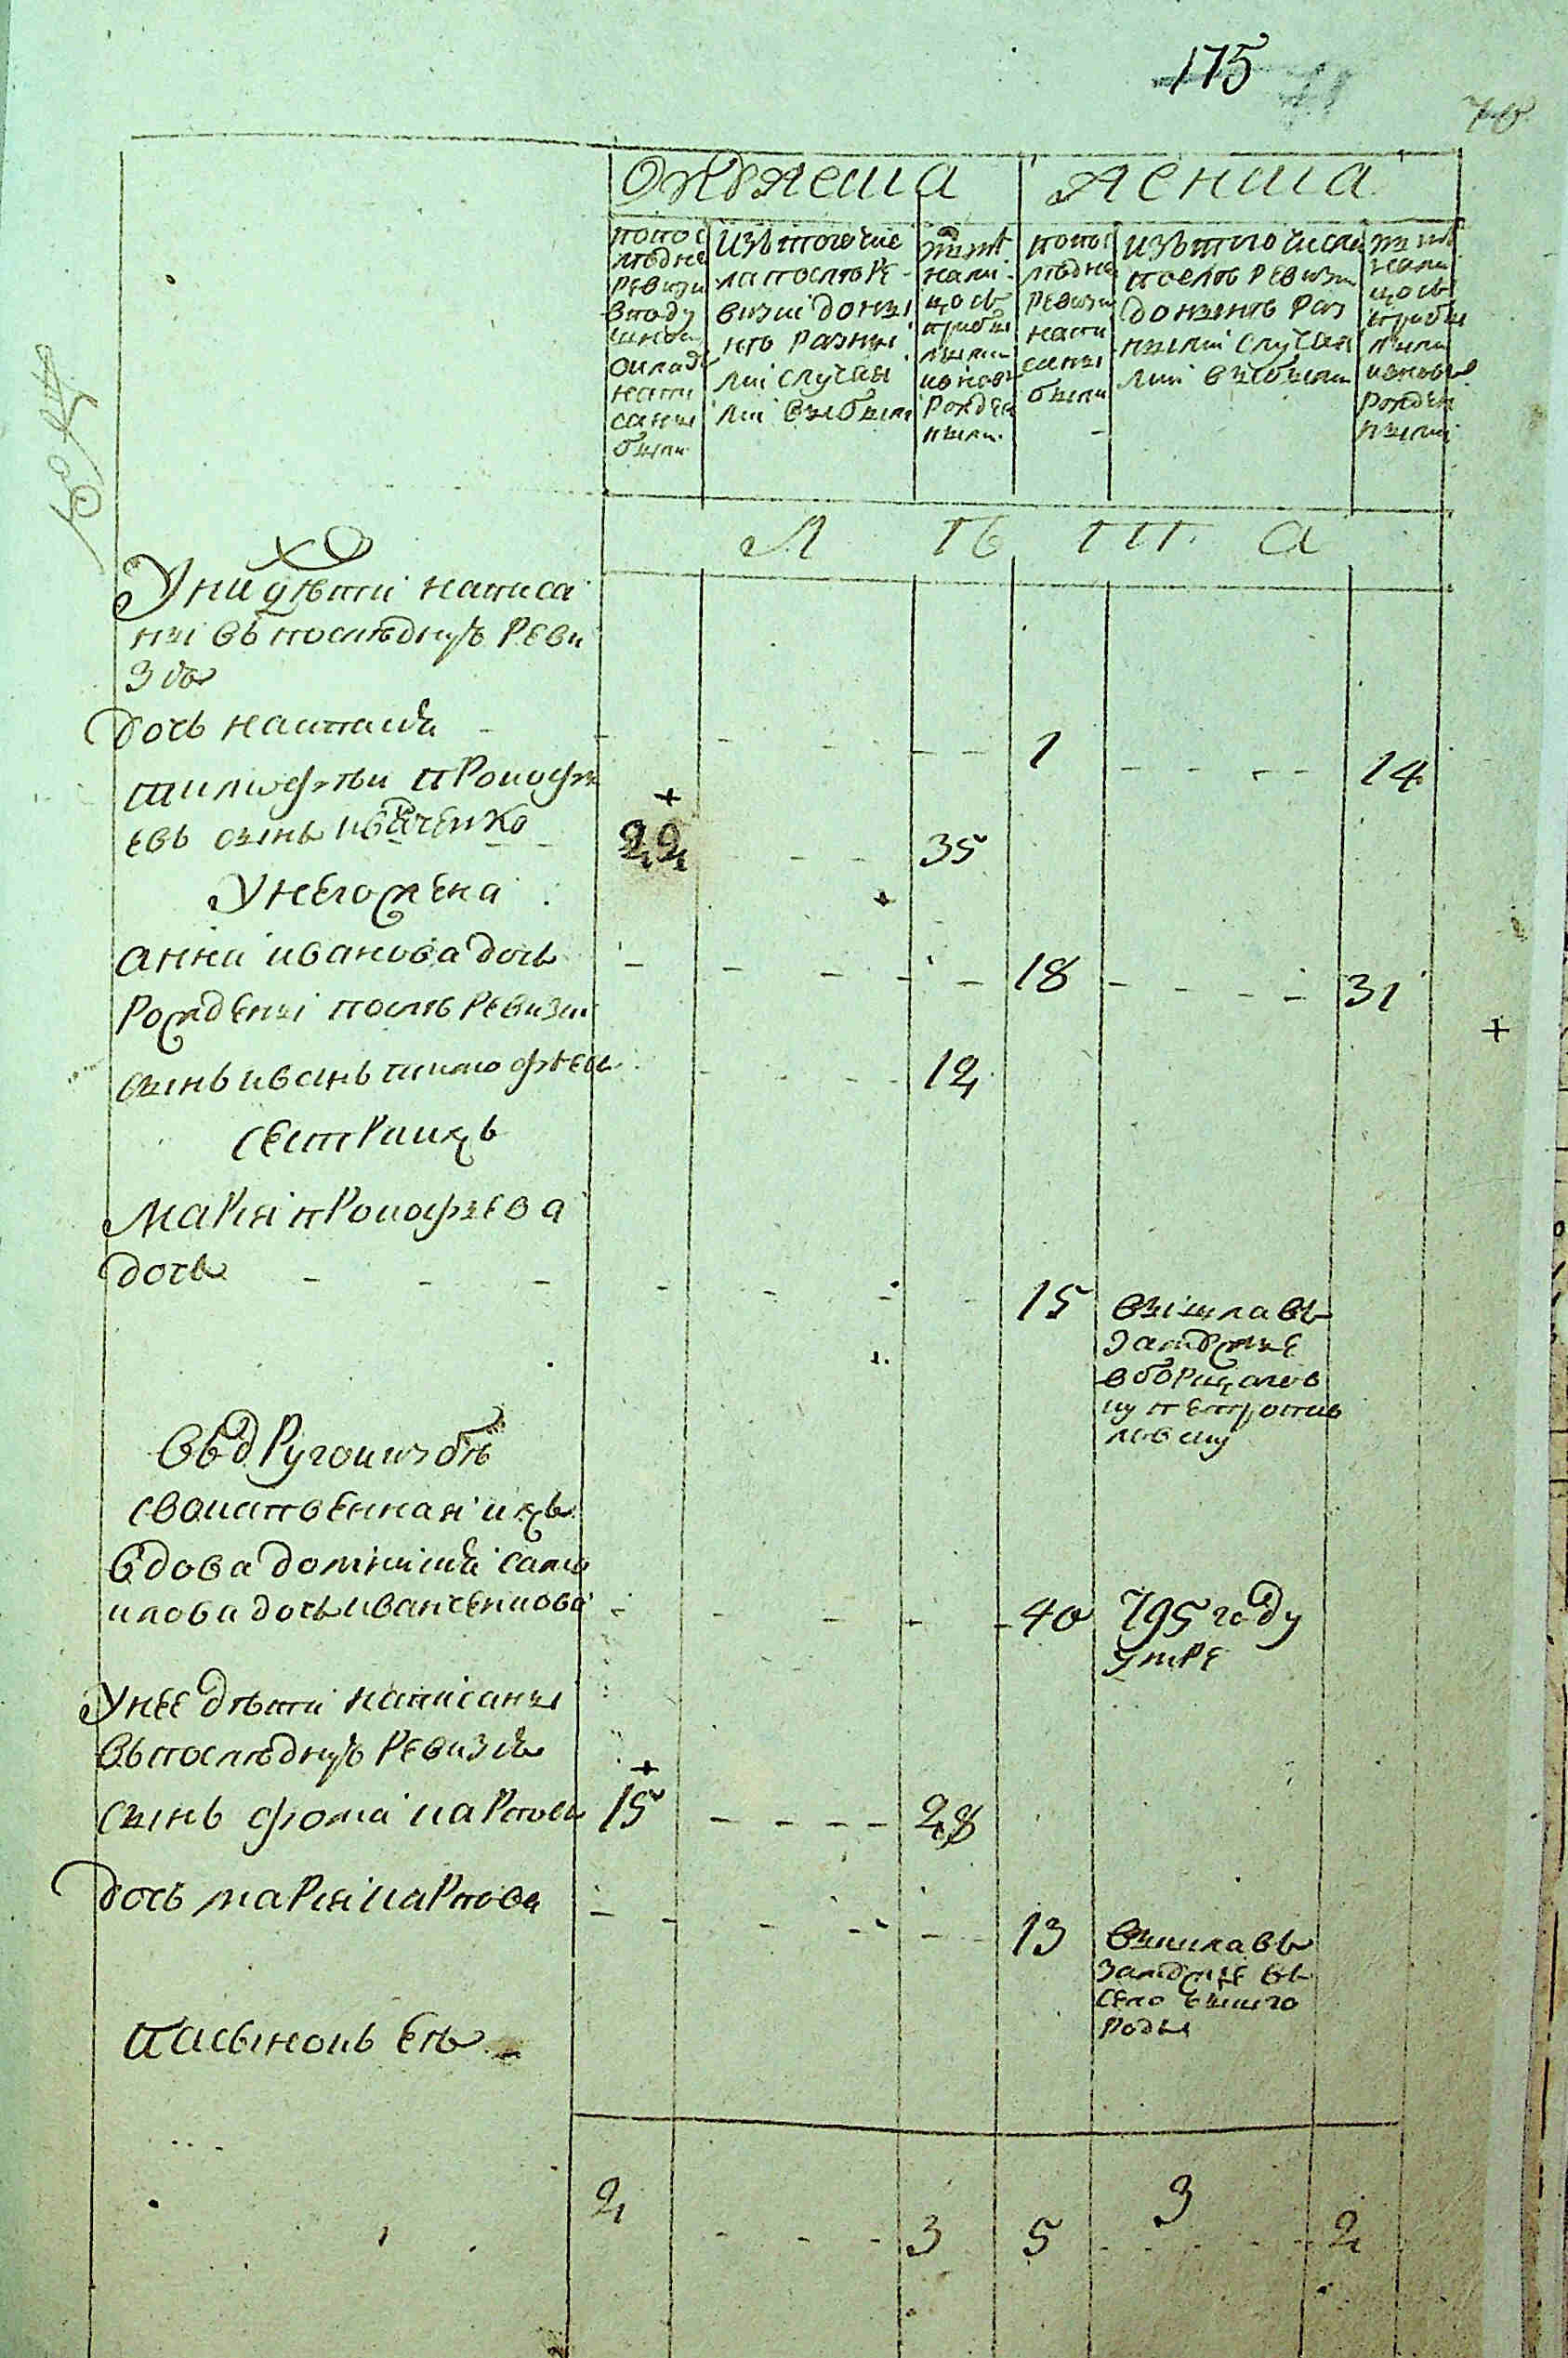 175
70
мужеска женска
попос
лѣдне
ревизи
вподу
шном
окладѣ
напи
саны
были
изътогочис
лапослѣ ре
визіи донын
нѣ разны
ми случая
ми выбыли
нынѣ
нали
цосъ
прибы
лыми
иновъ
рожден
ными
попос
лѣдне
ревизи
напи
саны
были
изътого числа
послѣ ревизи
донынѣ раз
ными случая
ми выбыли
нынѣ
нали
цосъ
прибы
лыми
иновъ
рожден
ными
Л Ѣ Т А
У них дѣти написа
ны въ последную реви
зию
дочь наталия - - - 1 - - - - 14
тимофѣи прокофь
евъ сынъ иваченко 22 - - 35
У него жена
анна иванова дочь - - - - - 18 - - - - 31
рождены послѣ ревизии
сынъ иванъ тимофѣевъ - - - 12
сестра ихъ
Мария прокофьева
дочь - - - - - - 15 вышла въ
замужье
Въ другои избѣ
своиственная ихъ
вдова домникия само
илова дочь иванченкова - - - - - 40 795 году
умре
У нее дѣти написаны
въ последную ревизию
сынъ фома карповъ 15 - - - - 28
дочь мария карпова - - - - - 13 вышла въ
замужье въ
село
пасынокъ еѣ
2 - - - 3 5 3 2